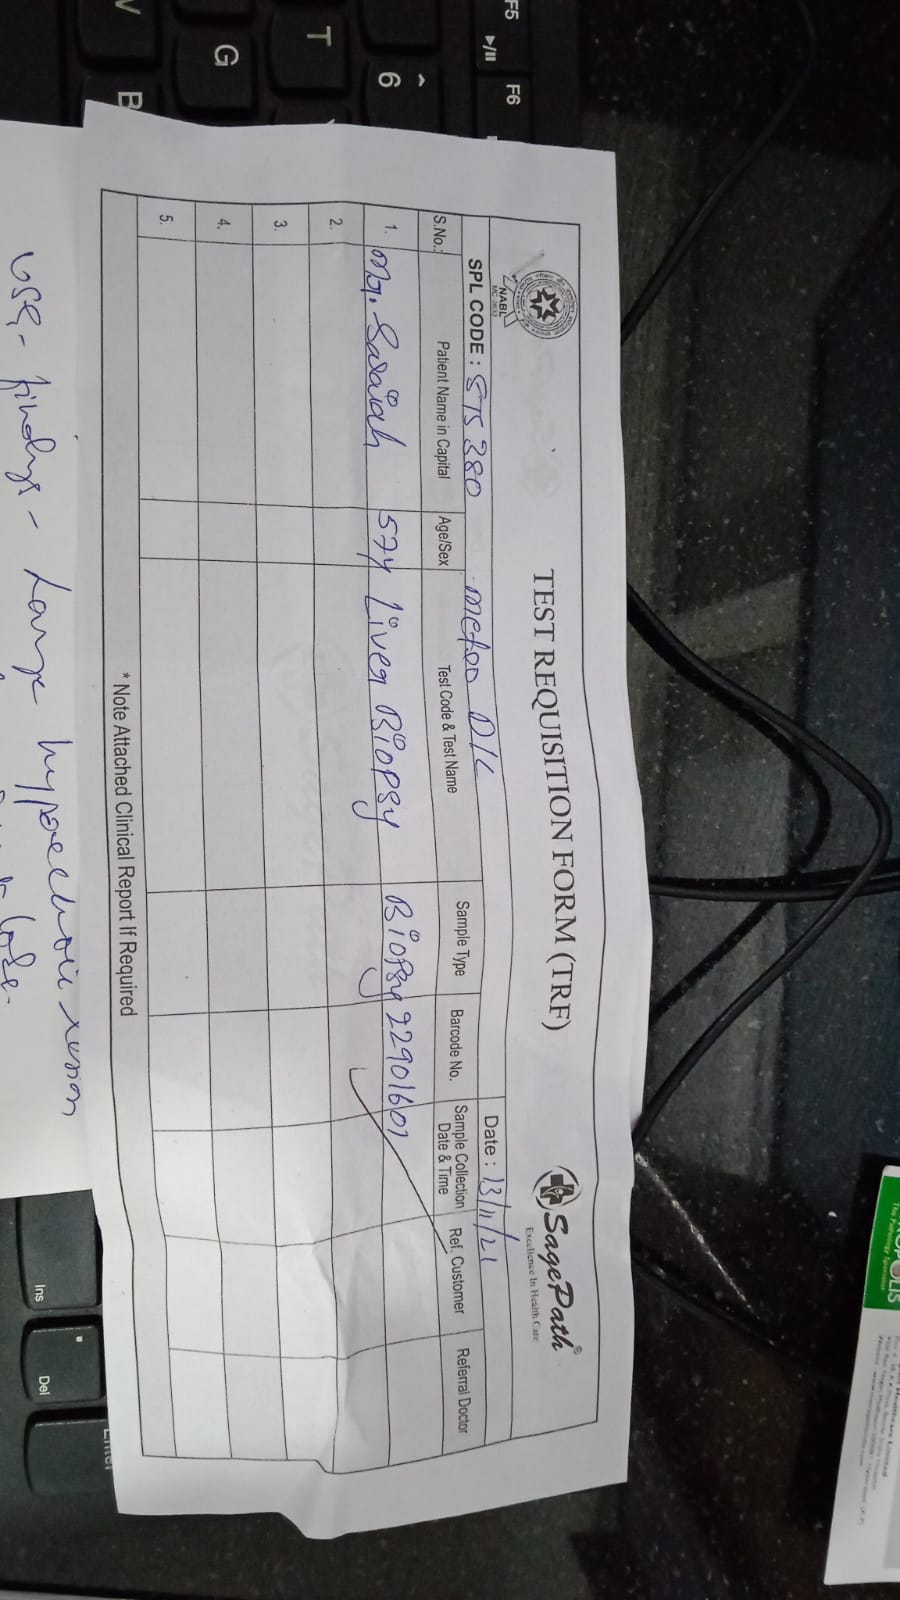 TEST REQUISITION FORM (TRF)
SagePath®
Excellence In Health Care
NABL
SPL CODE : STS 380 Metro D/L
Date : 13/11/21
S.No.: Patient Name in Capital Age/Sex Test Code & Test Name Sample Type Barcode No. Sample Collection Date & Time Ref. Customer Referral Doctor
1. Mr. Saraiah 57y Liver Biopsy Biopsy 22901601
2.
3.
4.
5.
* Note Attached Clinical Report If Required
USG - findings - Large hypoechoic lesion
lobe.
F5
F6
T
6
G
V
B
Ins
Del
Enter